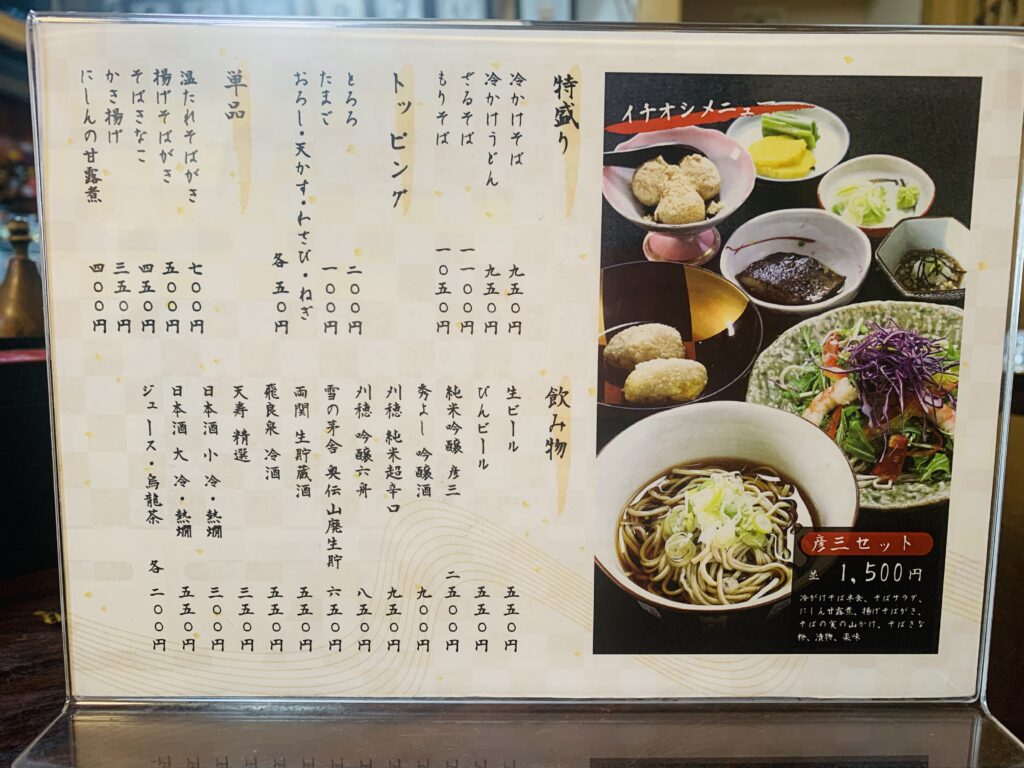 イチオシメニュー
彦三セット
並 1,500円
冷がけそば半食、そばサラダ、
にしん甘露煮、揚げそばがき、
そばの実の山かけ、そばきな
粉、漬物、薬味
特盛り
冷かけそば 九五〇円
冷かけうどん 九五〇円
ざるそば 一一〇〇円
もりそば 一〇五〇円
トッピング
とろろ 二〇〇円
たまご 一〇〇円
おろし・天かす・わさび・ねぎ 各 五〇円
単品
温たれそばがき 七〇〇円
揚げそばがき 五〇〇円
そばきなこ 四五〇円
かき揚げ 三五〇円
にしんの甘露煮 四〇〇円
飲み物
生ビール 五五〇円
びんビール 五五〇円
純米吟醸 彦三 二五〇〇円
秀よし 吟醸酒 九〇〇円
刈穂 純米超辛口 九五〇円
刈穂 吟醸六舟 八五〇円
雪の茅舎 奥伝山廃生貯 六五〇円
両関 生貯蔵酒 五五〇円
飛良泉 冷酒 五五〇円
天寿 精選 三五〇円
日本酒 小 冷・熱燗 三〇〇円
日本酒 大 冷・熱燗 五五〇円
ジュース・烏龍茶 各 二〇〇円